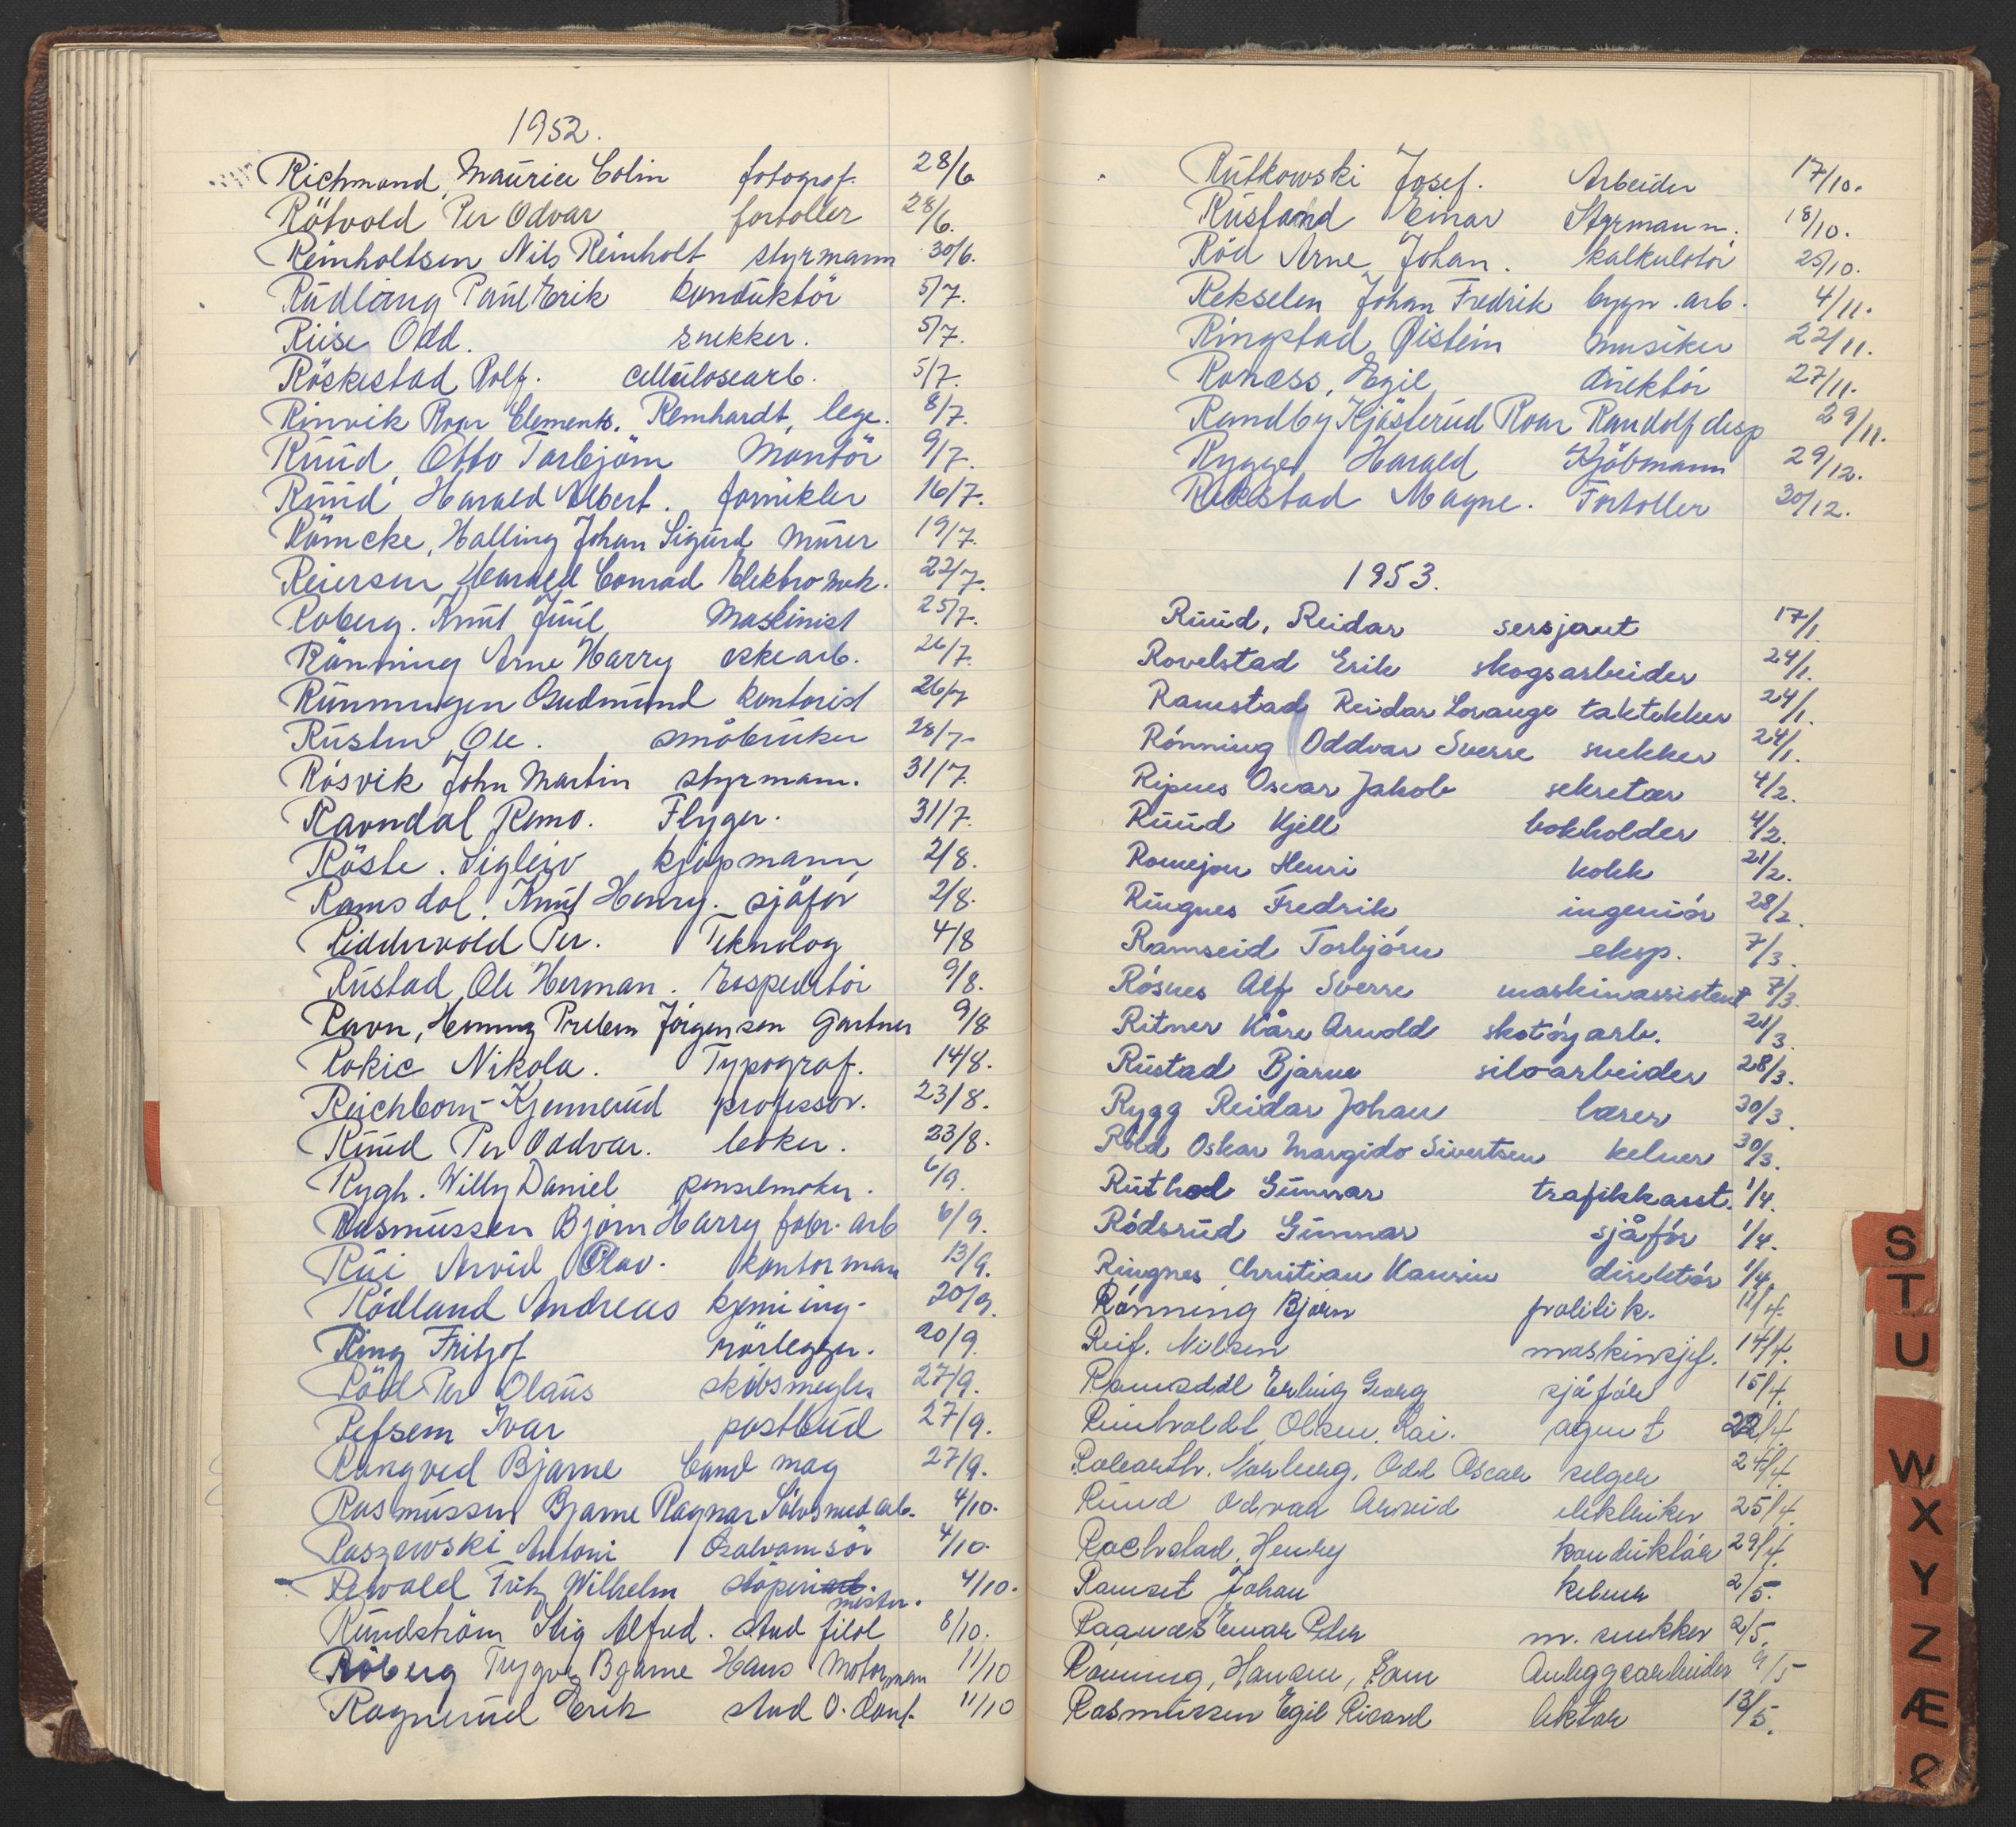 1952.
Richmond, Maurice Colin fotograf. 28/6
Rötvold, Per Odvar fortoller 28/6.
Reinholtsen Nils Reinholt styrmann 30/6.
Rüdlang Paul Erik konduktör 5/7.
Riise Odd. snekker. 5/7.
Röskestad Rolf. cellulosearb. 5/7.
Rinvik Roar Clements. Remhardt, lege. 8/7.
Ruud Otto Torbjörn Montör 9/7.
Ruud Harald Albert. fornikler 16/7.
Römcke, Halling Johan Sigurd Murer 19/7.
Reiersen, Harald Conrad Elektro mek. 22/7.
Roberg. Knut Juul Maskinist 25/7.
Rönning Arne Harry eskearb. 26/7.
Rünningen Gudmund kontorist 26/7
Rusten Ole. småbruker 28/7.
Rösvik John Martin styrmann. 31/7.
Ravndal Remo. Flyger. 31/7.
Röste. Sigleiv kjöpmann 2/8.
Ramsdal, Knut Henry. sjåför 2/8.
Riddervold Per. Teknolog 4/8
Rustad Ole Herman. Ekspeditör 9/8.
Ravn, Henning Preben Jörgensen Gartner 9/8
Rokic Nikola. Typograf. 14/8.
Reichborn-Kjennerud professor. 23/8.
Ruud Per Oddvar. baker. 23/8.
Rygh. Willy Daniel penselmaker. 6/9.
Rasmussen Björn Harry fabr. arb 6/9.
Rui Arvid Olav. kontorman 13/9.
Rödland Andreas kjemi ing. 20/9.
Ring Fritjof rörlegger. 20/9.
Röd Per Olaus skibsmegler 27/9.
Refsem Ivar postbud 27/9.
Rangved Bjarne Cand mag 27/9.
Rasmussen Bjarne Ragnar Sölvsmedarb. 4/10.
Raszewski Antoni Galvanisör 4/10.
Rewald Fritz Wilhelm stöperiarb. mester. 4/10.
Rundström Stig Alfred. stud filol 8/10.
Röberg Trygve Bjarne Hans Motorman 11/10
Ragnerud Erik stud O. 11/10
Rutkowski Josef. Arbeider 17/10.
Rusfand Einar Styrmann. 18/10.
Röd Arne Johan. kalkulatör 25/10.
Rekselen Johan Fredrik bygn. arb. 4/11.
Ringstad Øistein Musiker 22/11.
Ronæss, Egil direktör 27/11.
Randby Kjösterud Roar Randolf disp 29/11.
Rygge, Harald Kjöbmann 29/12.
Rekstad Magne. Fortoller 30/12.
1953.
Ruud, Reidar sersjant 17/1
Rovelstad Erik skogsarbeider 24/1.
Ramstad Reidar Lorange taktekker 24/1.
Rönning Oddvar Sverre snekker 24/1.
Ripnes Oscar Jakob sekretær 4/2.
Ruud Kjell bokholder 4/2.
Romejon Henri kokk 21/2.
Ringnes Fredrik ingeniör 28/2.
Ramseid Torbjörn eksp. 7/3.
Rösnes Alf Sverre maskinassistent 7/3.
Ritner Kåre Arnold skotöyarb. 21/3.
Rustad Bjarne siloarbeider 28/3.
Rygg Reidar Johan lærer 30/3.
Röld Oskar Margido Sivertsen kelner 30/3.
Ruthol Gunnar trafikkasst. 1/4.
Rödsrud Gunnar sjåför 1/4.
Ringnes Christian Kaurin direktör 1/4.
Rönning Björn politik. 11/4.
Reif. Nilsen maskinsjef. 14/4.
Ramsdal Erling Georg sjåför 15/4.
Reinholdt Olsen. Kai. agent 22/4.
Robarth. Norberg. Odd Oscar selger 24/4.
Ruud Odvar Arveid elektriker 25/4.
Rachstad, Henry konduktör 29/4.
Ramset Johan kelner 2/5.
Raanæs Einar Peter m. snekker 2/5.
Rönning, Hansen, Jörn Anleggsarbeider 9/5
Rasmussen Egil Ricard lektor 13/5.
S
T
U
W
X
Y
Z
Æ
Ø